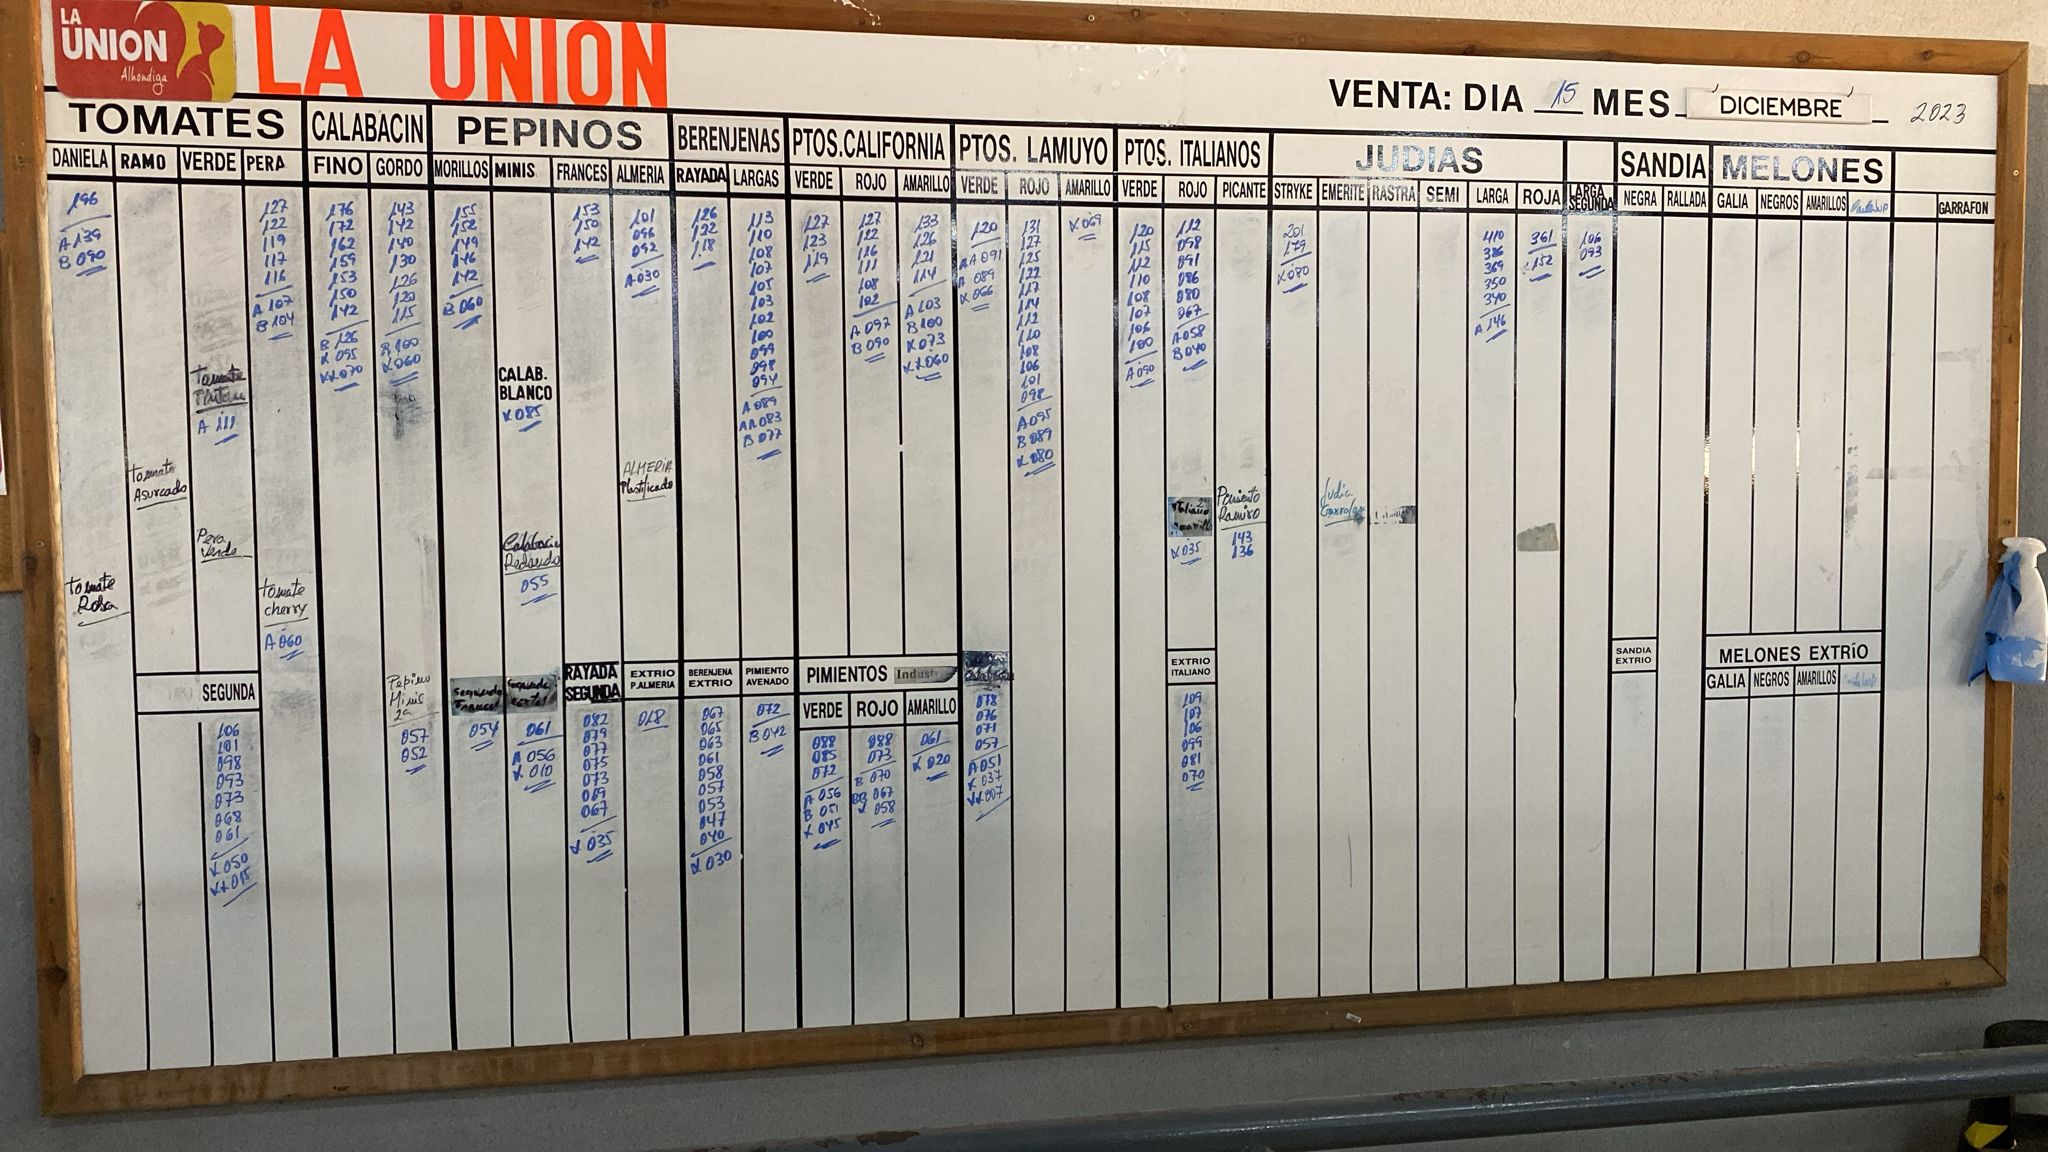 LA UNION
Alhóndiga
LA UNION
VENTA: DIA 15 MES DICIEMBRE 2023
TOMATES
CALABACIN
PEPINOS
BERENJENAS
PTOS. CALIFORNIA
PTOS. LAMUYO
PTOS. ITALIANOS
JUDIAS
SANDIA
MELONES
DANIELA
196
A 139
B 090
Tomate
Rosa
RAMO
Tomate
Asurcado
VERDE
A 111
Pera
Verde
SEGUNDA
106
101
098
093
073
068
061
X 050
XX 015
PERA
127
122
119
117
116
A 107
B 104
Tomate
cherry
A 060
FINO
176
172
162
159
153
150
142
B 126
X 095
XX 070
GORDO
143
142
140
130
126
120
115
B 100
X 060
Pepino
Minis
2a
057
052
MORILLOS
155
152
149
146
142
B 060
Segunda
Frances
054
MINIS
CALAB.
BLANCO
X 085
Calabacin
Redondo
055
061
A 056
X 010
FRANCES
153
150
142
RAYADA
SEGUNDA
082
079
077
075
073
069
067
X 035
ALMERIA
101
096
092
A 030
ALMERIA
Plastificado
EXTRIO
P.ALMERIA
018
RAYADA
126
122
118
BERENJENA
EXTRIO
067
065
063
061
058
057
053
047
040
X 030
LARGAS
113
110
108
107
105
103
102
100
099
098
094
A 089
AA 083
B 077
PIMIENTO
AVENADO
072
B 042
VERDE
127
123
119
ROJO
127
122
116
111
108
102
A 097
B 090
AMARILLO
133
126
121
114
A 103
B 100
X 073
XX 060
PIMIENTOS Indust
VERDE
088
085
072
A 056
B 051
X 045
ROJO
088
073
B 070
BB 067
X 058
AMARILLO
061
X 020
VERDE
120
AA 091
A 089
X 066
078
076
071
057
A 051
X 037
XX 007
ROJO
131
127
125
122
117
114
112
110
108
106
101
098
A 095
B 089
X 080
AMARILLO
X 069
VERDE
120
115
112
110
108
107
106
100
A 090
ROJO
112
098
091
086
080
067
A 058
B 040
Italiano
Amarillo
X 035
EXTRIO
ITALIANO
109
107
106
099
081
070
PICANTE
Pimiento
Ramiro
143
136
STRYKE
201
179
X 080
EMERITE
Judia
Garrafon
RASTRA
SEMI
LARGA
410
386
369
350
340
A 146
ROJA
361
X 152
LARGA
SEGUNDA
106
093
NEGRA
RALLADA
SANDIA
EXTRIO
GALIA
NEGROS
AMARILLOS
MELONES EXTRIO
GALIA
NEGROS
AMARILLOS
GARRAFON